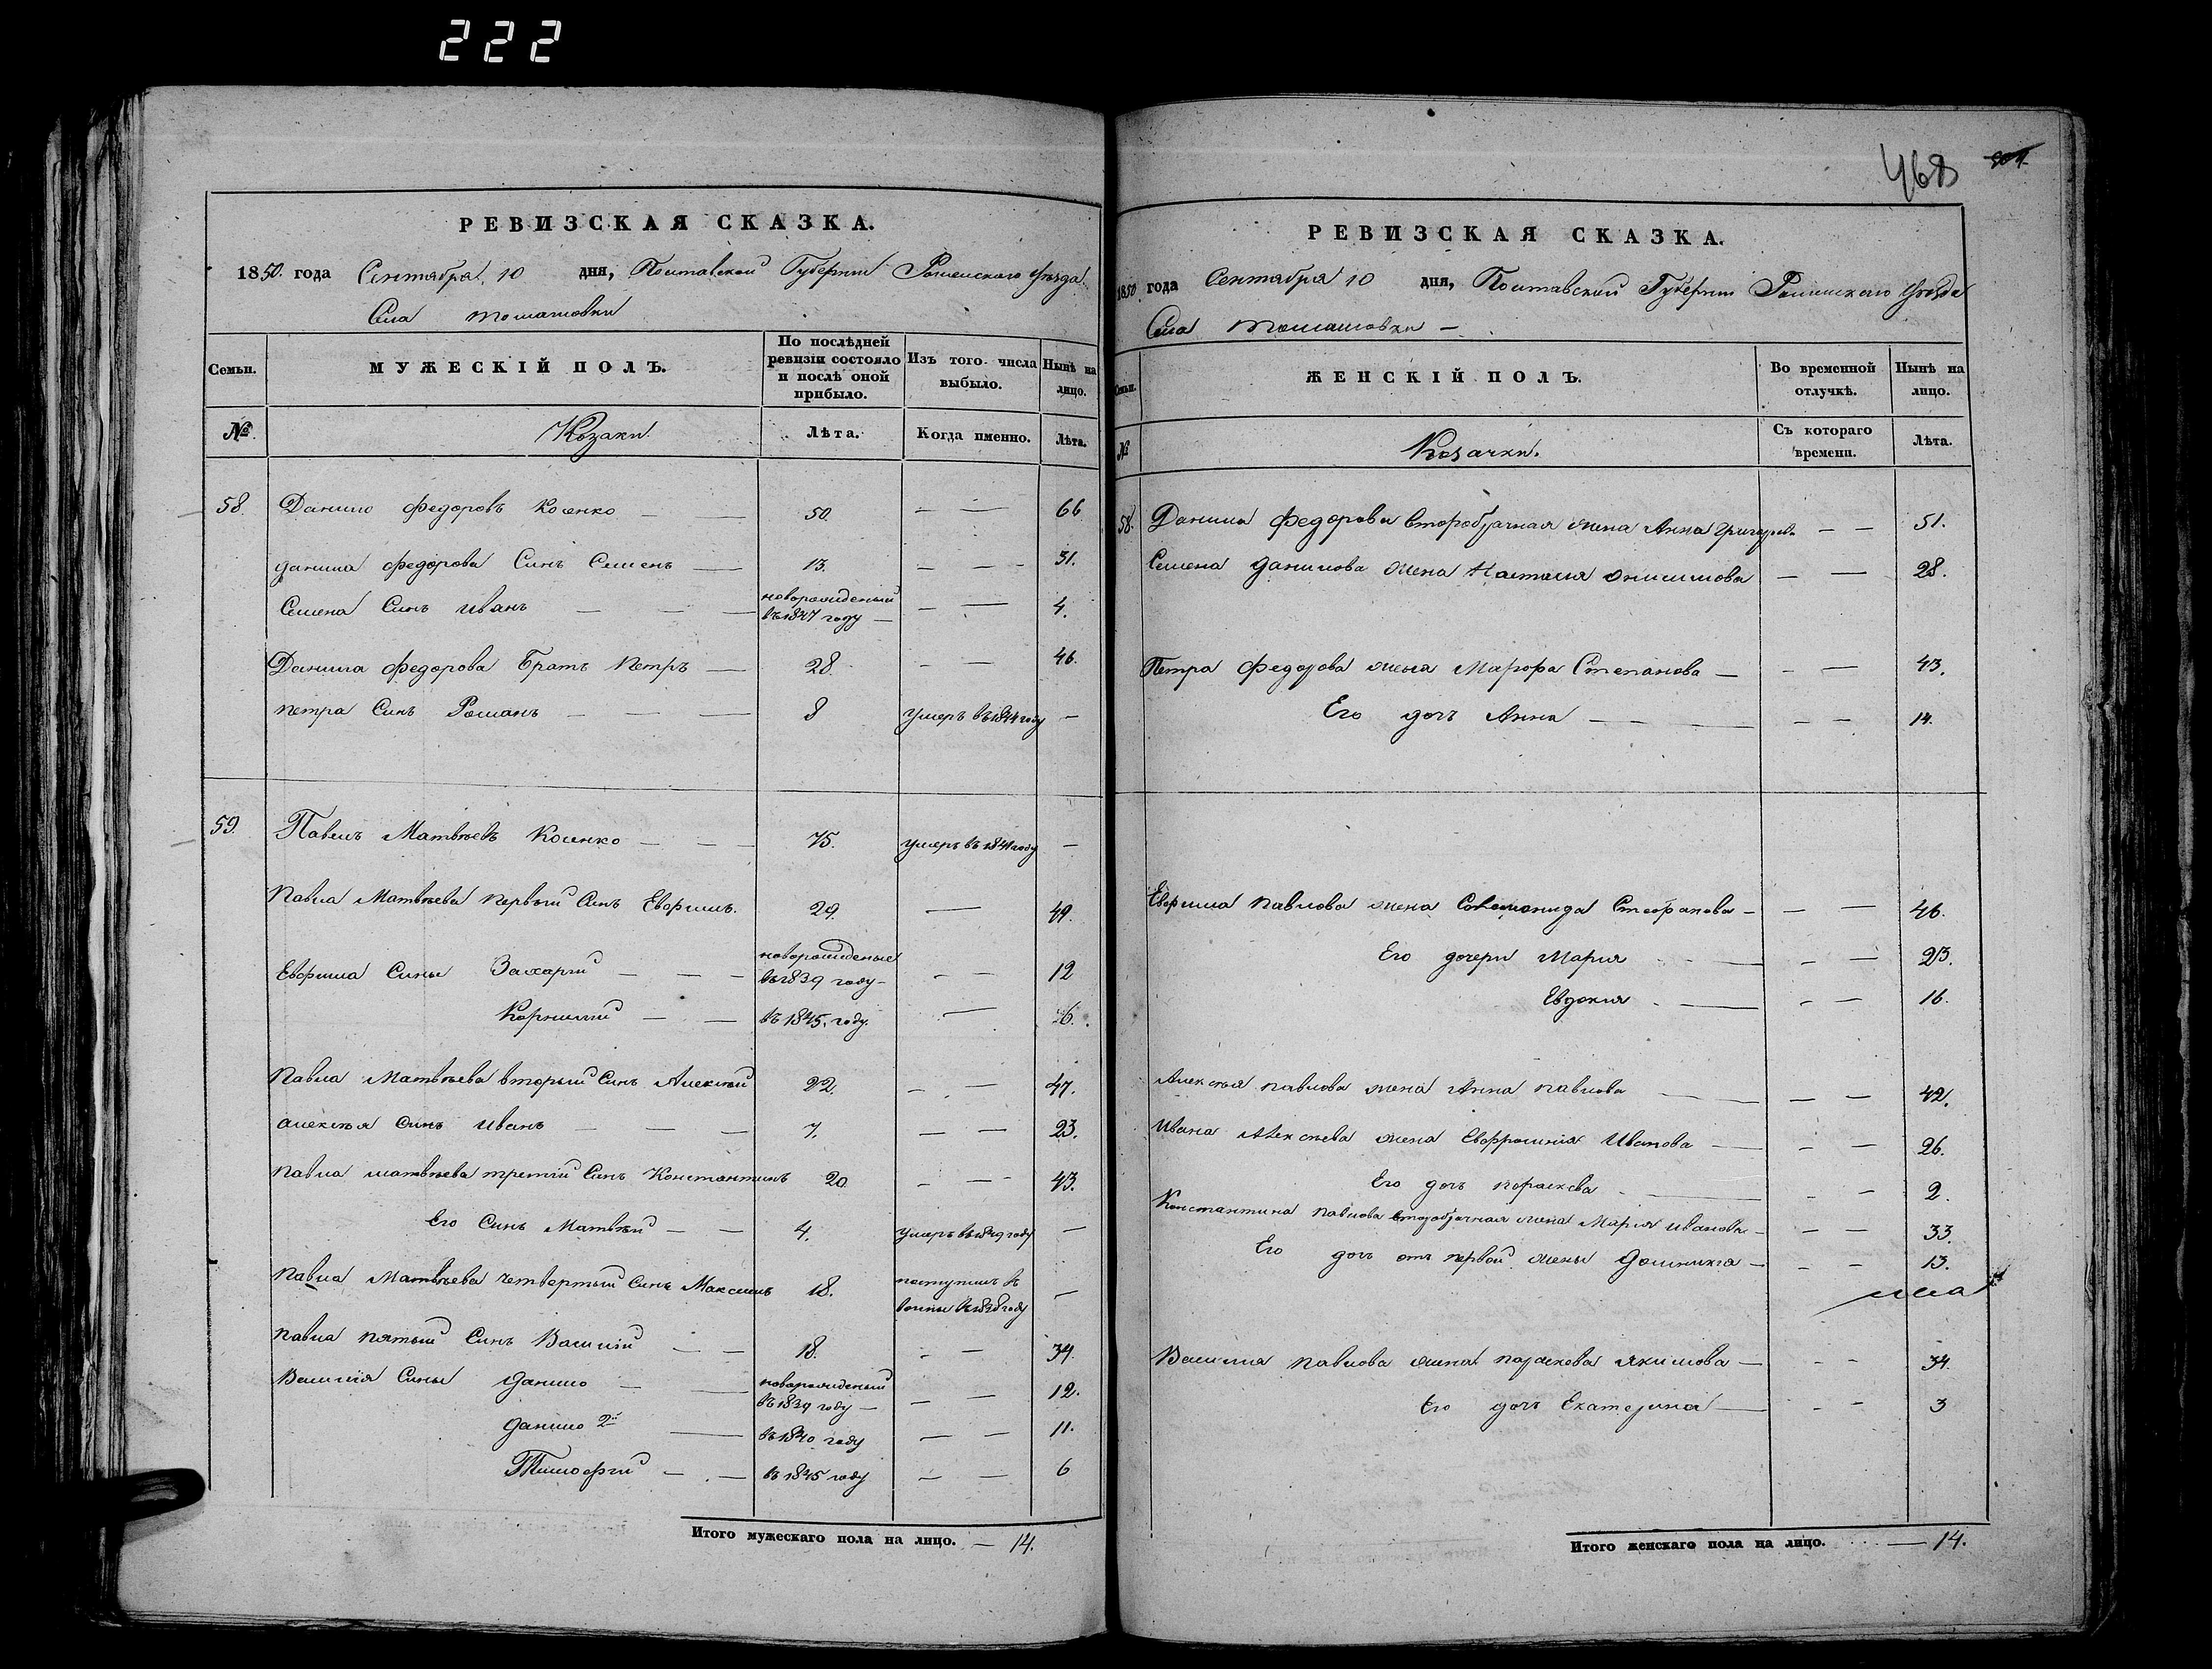 222
РЕВИЗСКАЯ СКАЗКА.
1850. года Сентября 10 дня, Полтавской Губернии Роменского уезда
Села Томашовки
Семьи. МУЖЕСКІЙ ПОЛЪ. По послѣдней ревизіи состояло и послѣ оной прибыло. Изъ того числа выбыло. Нынѣ на лицо.
№ Козаки. Лѣта. Когда именно. Лѣта.
58. Данило Федоровъ Косенко — — 50. — — 66
Данила Федорова Синъ Семенъ — 13. — — - 31.
Семена Синъ Иванъ — — — новорожденый въ 1847 году — — — 4.
Данила Федорова Братъ Петръ — 28. - — 46.
Петра Синъ Романъ — — — 8 умеръ въ 1844 году —
59. Павелъ Матвѣевъ Косенко — — — 75. умеръ въ 1841 году —
Павла Матвѣева первый Синъ Евфимъ. 29. — 49.
Евфима Сины Захарій — — — новорожденые въ 1839 году — - — 12
Корнилий — — въ 1845. году. — 6.
Павла Матвѣева вторый Синъ Алексѣй 22. — — 47.
Алексѣя Синъ Иванъ — — — 7. — — 23.
Павла Матвѣева третій Синъ Константинъ 20 - — - 43.
Его Синъ Матвѣй — — 4. умеръ въ 1849 году —
Павла Матвѣева четвертый Синъ Максимъ 18. поступилъ в воины в 1838 году —
Павла пятый Синъ Василій — — 18. - — 34.
Василія Сины Данило — — новорожденый въ 1839 году — — — 12.
Данило 2й — въ 1840 году — — 11.
Тимофій — — въ 1845 году — — 6
Итого мужескаго пола на лицо. — 14.
468 501
РЕВИЗСКАЯ СКАЗКА.
1850 года Сентября 10 дня, Полтавской Губернии Роменского уезда
Села Томашовки —
Семьи. ЖЕНСКІЙ ПОЛЪ. Во временной отлучкѣ. Нынѣ на лицо.
№ Козачки. Съ котораго времени. Лѣта.
58. Данила Федорова второбрачная жена Анна Григорьев. — — 51.
Семена Данилова жена Наталия Онисимова — — 28.
Петра Федорова жена Марфа Степанова — - — 43.
Его дочь Анна — — — — — 14.
Евфима Павлова жена Соломонида Стефанова — — — 46.
Его дочери Мария — - — 23.
Евдокия — - — 16.
Алексѣя Павлова жена Анна Павлова — — — 42.
Ивана Алексѣева жена Евфросиния Иванова — - — 26.
Его дочь Параскева — - — 2.
Константина Павлова второбрачная жена Мария Иванова — — — 33.
Его дочь от первой жены Домникия — - — 13.
Василия Павлова жена Параскева Якимова — - — 34.
Его дочь Екатерина — - — 3
Итого женскаго пола на лицо. — 14.